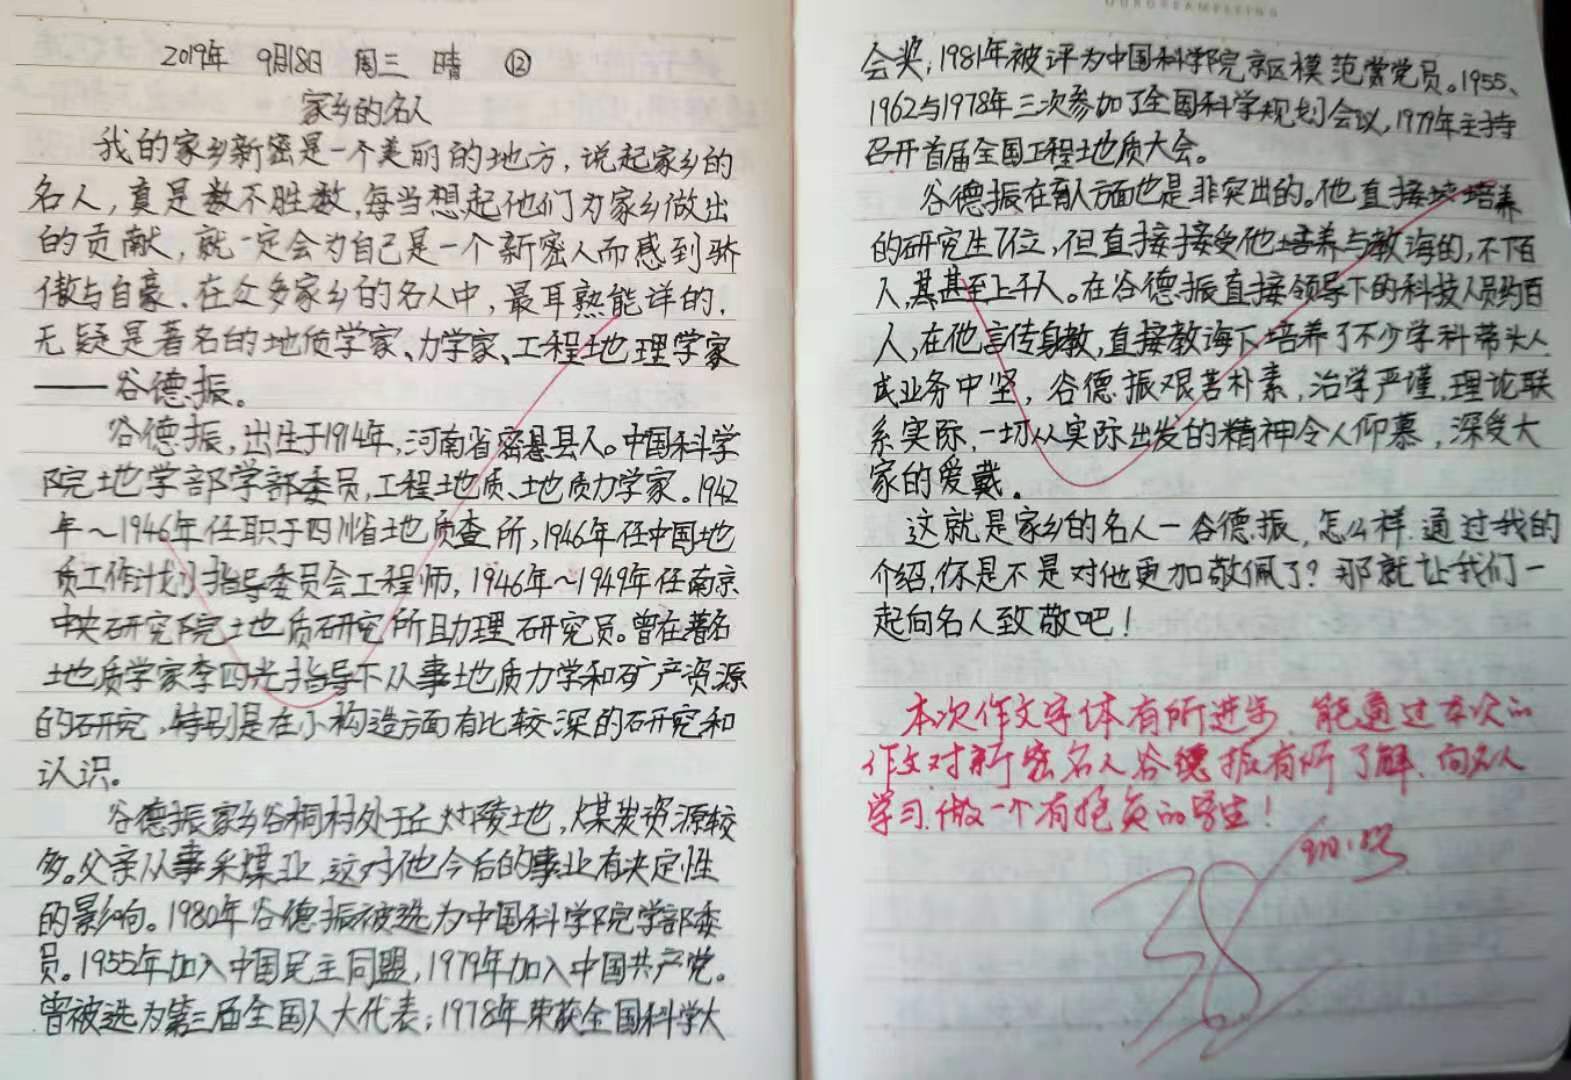 2019年 9月18日 周三 晴 ⑫
家乡的名人
我的家乡新密是一个美丽的地方，说起家乡的
名人，真是数不胜数，每当想起他们为家乡做出
的贡献，就一定会为自己是一个新密人而感到骄
傲与自豪、在众多家乡的名人中，最耳熟能详的，
无疑是著名的地质学家、力学家、工程地理学家
——谷德振。
谷德振，出生于1914年，河南省密县人。中国科学
院地学部学部委员，工程地质、地质力学家。1942
年～1946年任职于四川省地质查所，1946年任中国地
质工作计划指导委员会工程师，1946年～1949年任南京
中央研究院地质研究所助理研究员。曾在著名
地质学家李四光指导下从事地质力学和矿产资源
的研究，特别是在小构造方面有比较深的研究和
认识。
谷德振家乡谷桐村处于丘陵地，煤炭资源较
多。父亲从事采煤业，这对他今后的事业有决定性
的影响。1980年谷德振被选为中国科学院学部委
员。1955年加入中国民主同盟，1979年加入中国共产党。
曾被选为第三届全国人大代表；1978年荣获全国科学大
OUROREAMPEFING
会奖；1981年被评为中国科学院京区模范党员。1955、
1962与1978年三次参加了全国科学规划会议，1979年主持
召开首届全国工程地质大会。
谷德振在育人方面也是非突出的。他直接培养
的研究生7位，但直接接受他培养与教海的，不下百
人，甚至上千人。在谷德振直接领导下的科技人员约百
人，在他言传身教，直接教海下培养了不少学科带头人
或业务中坚，谷德振艰苦朴素，治学严谨，理论联
系实际，一切从实际出发的精神令人仰慕，深受大
家的爱戴。
这就是家乡的名人—谷德振，怎么样，通过我的
介绍，你是不是对他更加敬佩了？那就让我们一
起向名人致敬吧！
本次作文字体有所进步，能通过本次的
作文对新密名人谷德振有所了解，向名人
学习，做一个有抱负的学生！
38